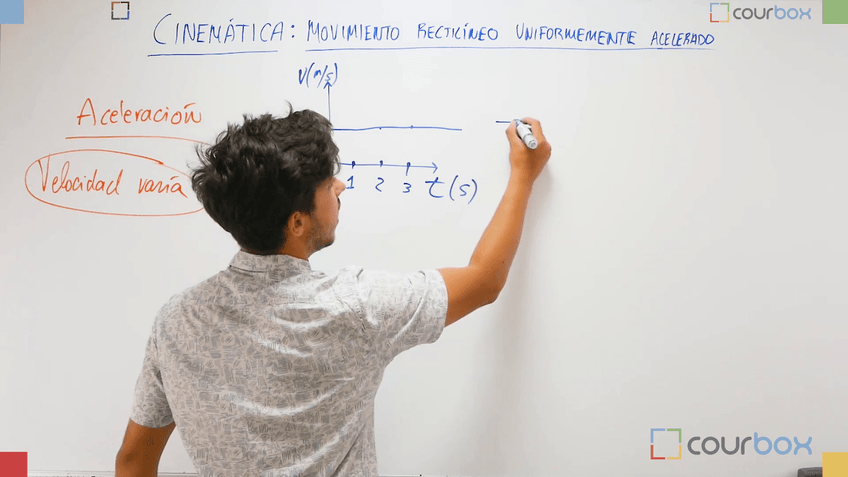 courbox
CINEMÁTICA: MOVIMIENTO RECTILÍNEO UNIFORMEMENTE ACELERADO
V(m/s)
Aceleración
Velocidad varía
1 2 3 t(s)
courbox